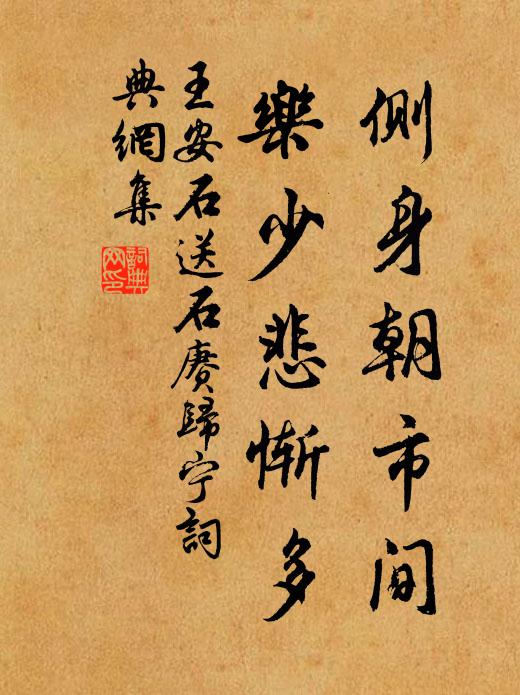 側身朝市間
樂少悲慚多
王安石送石賡歸宁詞
典網集
詞典網印